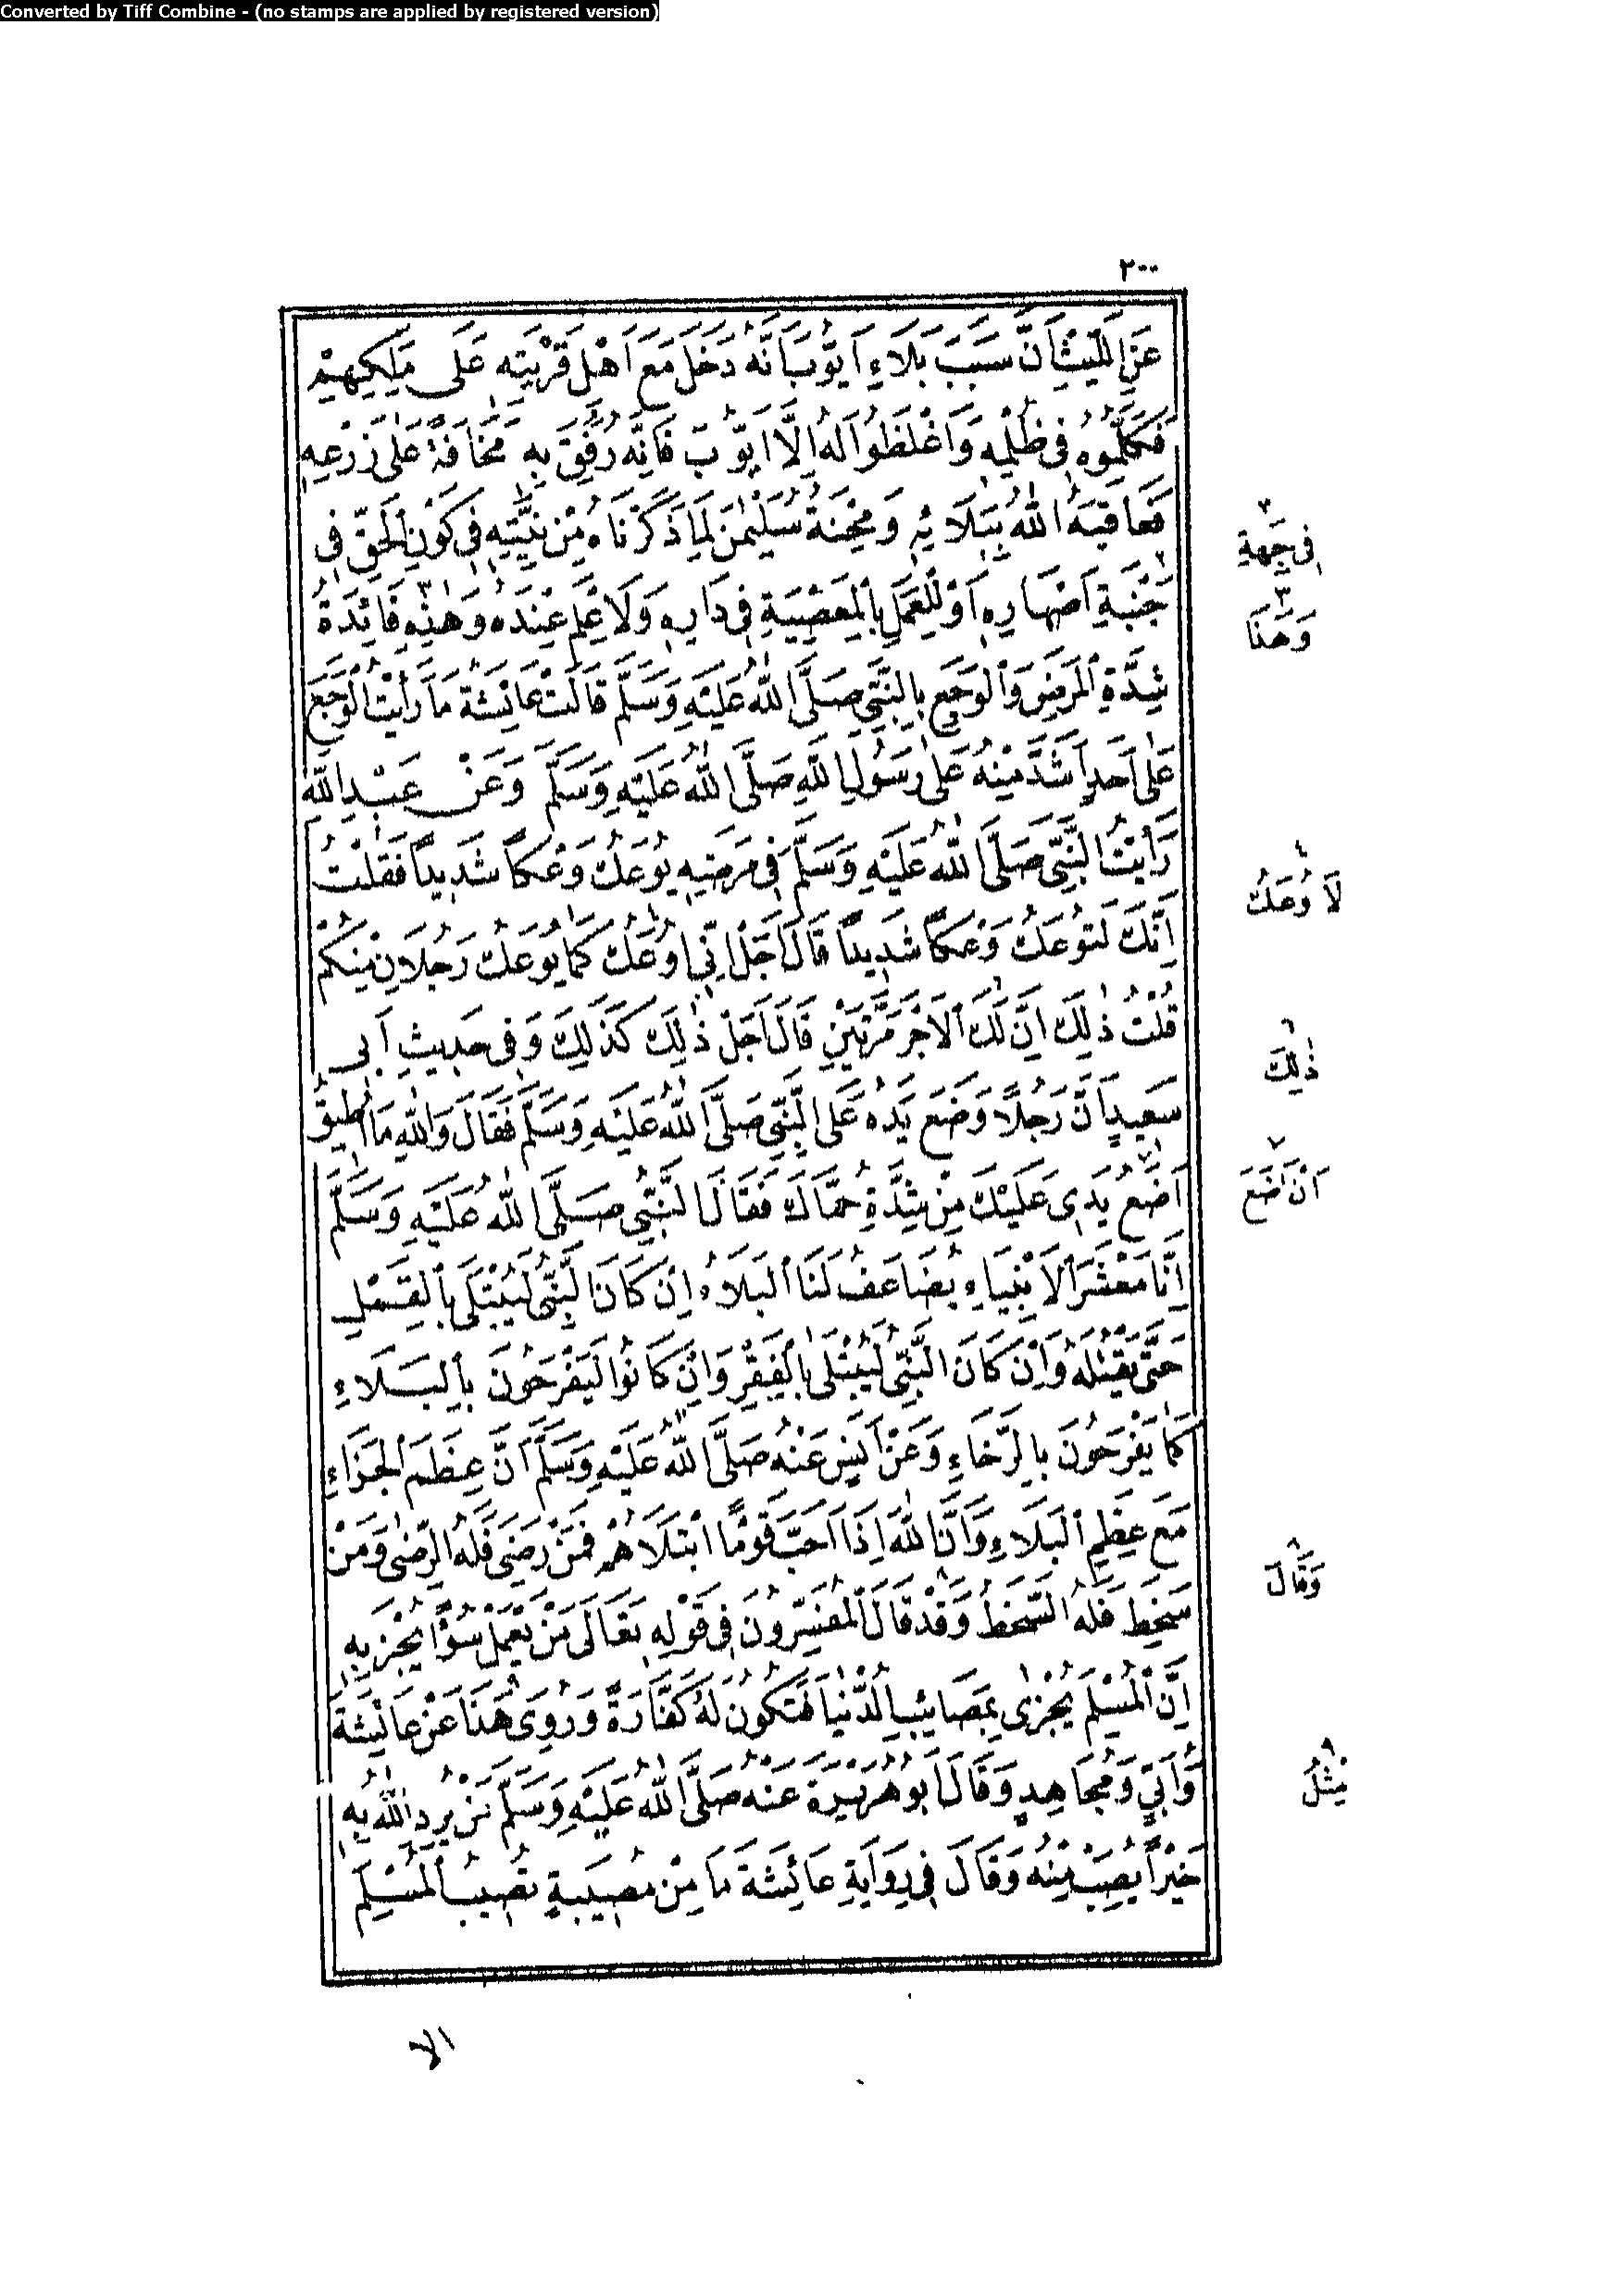 Converted by Tiff Combine - (no stamps are applied by registered version)
٢٠٠
عَنِ اللَّيْثِ أَنَّ سَبَبَ بَلَاءِ أَيُّوبَ أَنَّهُ دَخَلَ مَعَ أَهْلِ قَرْيَتِهِ عَلَى مَلِكِهِمْ
فَكَلَّمُوهُ فِي ظُلْمِهِ وَأَغْلَظُوا لَهُ إِلَّا أَيُّوبَ فَإِنَّهُ رَفَقَ بِهِ مَخَافَةً عَلَى زَرْعِهِ
فَعَاقَبَهُ اللهُ بِبَلَائِهِ وَمِحْنَةُ سُلَيْمٰنَ لِمَا ذَكَرْنَاهُ مِنْ نِيَّتِهِ فِي كَوْنِ الْحَقِّ فِي
جَنْبَةِ أَصْهَارِهِ أَوْ لِلْعَمَلِ بِالْمَعْصِيَةِ فِي دَارِهِ وَلَا عِلْمَ عِنْدَهُ وَهٰذِهِ فَائِدَةُ
شِدَّةِ الْمَرَضِ وَالْوَجَعِ بِالنَّبِيِّ صَلَّى اللهُ عَلَيْهِ وَسَلَّمَ قَالَتْ عَائِشَةُ مَا رَأَيْتُ الْوَجَعَ
عَلَى أَحَدٍ أَشَدَّ مِنْهُ عَلَى رَسُولِ اللهِ صَلَّى اللهُ عَلَيْهِ وَسَلَّمَ وَعَنْ عَبْدِ اللهِ
رَأَيْتُ النَّبِيَّ صَلَّى اللهُ عَلَيْهِ وَسَلَّمَ فِي مَرَضِهِ يُوعَكُ وَعْكًا شَدِيدًا فَقُلْتُ
إِنَّكَ لَتُوعَكُ وَعْكًا شَدِيدًا قَالَ أَجَلْ إِنِّي أُوعَكُ كَمَا يُوعَكُ رَجُلَانِ مِنْكُمْ
قُلْتُ ذٰلِكَ إِنَّ لَكَ الْأَجْرَ مَرَّتَيْنِ قَالَ أَجَلْ ذٰلِكَ كَذٰلِكَ وَفِي حَدِيثِ أَبِي
سَعِيدٍ أَنَّ رَجُلًا وَضَعَ يَدَهُ عَلَى النَّبِيِّ صَلَّى اللهُ عَلَيْهِ وَسَلَّمَ فَقَالَ وَاللهِ مَا أُطِيقُ
أَضَعُ يَدِي عَلَيْكَ مِنْ شِدَّةِ حُمَّاكَ فَقَالَ النَّبِيُّ صَلَّى اللهُ عَلَيْهِ وَسَلَّمَ
إِنَّا مَعْشَرَ الْأَنْبِيَاءِ يُضَاعَفُ لَنَا الْبَلَاءُ إِنْ كَانَ النَّبِيُّ لَيُبْتَلَى بِالْقَمْلِ
حَتَّى يَقْتُلَهُ وَإِنْ كَانَ النَّبِيُّ لَيُبْتَلَى بِالْفَقْرِ وَإِنْ كَانُوا لَيَفْرَحُونَ بِالْبَلَاءِ
كَمَا يَفْرَحُونَ بِالرَّخَاءِ وَعَنْ أَنَسٍ عَنْهُ صَلَّى اللهُ عَلَيْهِ وَسَلَّمَ أَنَّ عِظَمَ الْجَزَاءِ
مَعَ عِظَمِ الْبَلَاءِ وَأَنَّ اللهَ إِذَا أَحَبَّ قَوْمًا ابْتَلَاهُمْ فَمَنْ رَضِيَ فَلَهُ الرِّضٰى وَمَنْ
سَخِطَ فَلَهُ السَّخَطُ وَقَدْ قَالَ الْمُفَسِّرُونَ فِي قَوْلِهِ تَعَالَى مَنْ يَعْمَلْ سُوءًا يُجْزَ بِهِ
إِنَّ الْمُسْلِمَ يُجْزٰى بِمَصَائِبِ الدُّنْيَا فَتَكُونُ لَهُ كَفَّارَةً وَرُوِيَ هٰذَا عَنْ عَائِشَةَ
وَأُبَيٍّ وَمُجَاهِدٍ وَقَالَ أَبُو هُرَيْرَةَ عَنْهُ صَلَّى اللهُ عَلَيْهِ وَسَلَّمَ مَنْ يُرِدِ اللهُ بِهِ
خَيْرًا يُصِبْ مِنْهُ وَقَالَ فِي رِوَايَةِ عَائِشَةَ مَا مِنْ مُصِيبَةٍ تُصِيبُ الْمُسْلِمَ
٢
فِي جِهَةِ
٣
وَهٰذَا
٤
لَأُوعَكُ
٦
ذٰلِكَ
٧
أَنْ أَضَعَ
٨
وَقَالَ
٩
مِثْلُ
إلا